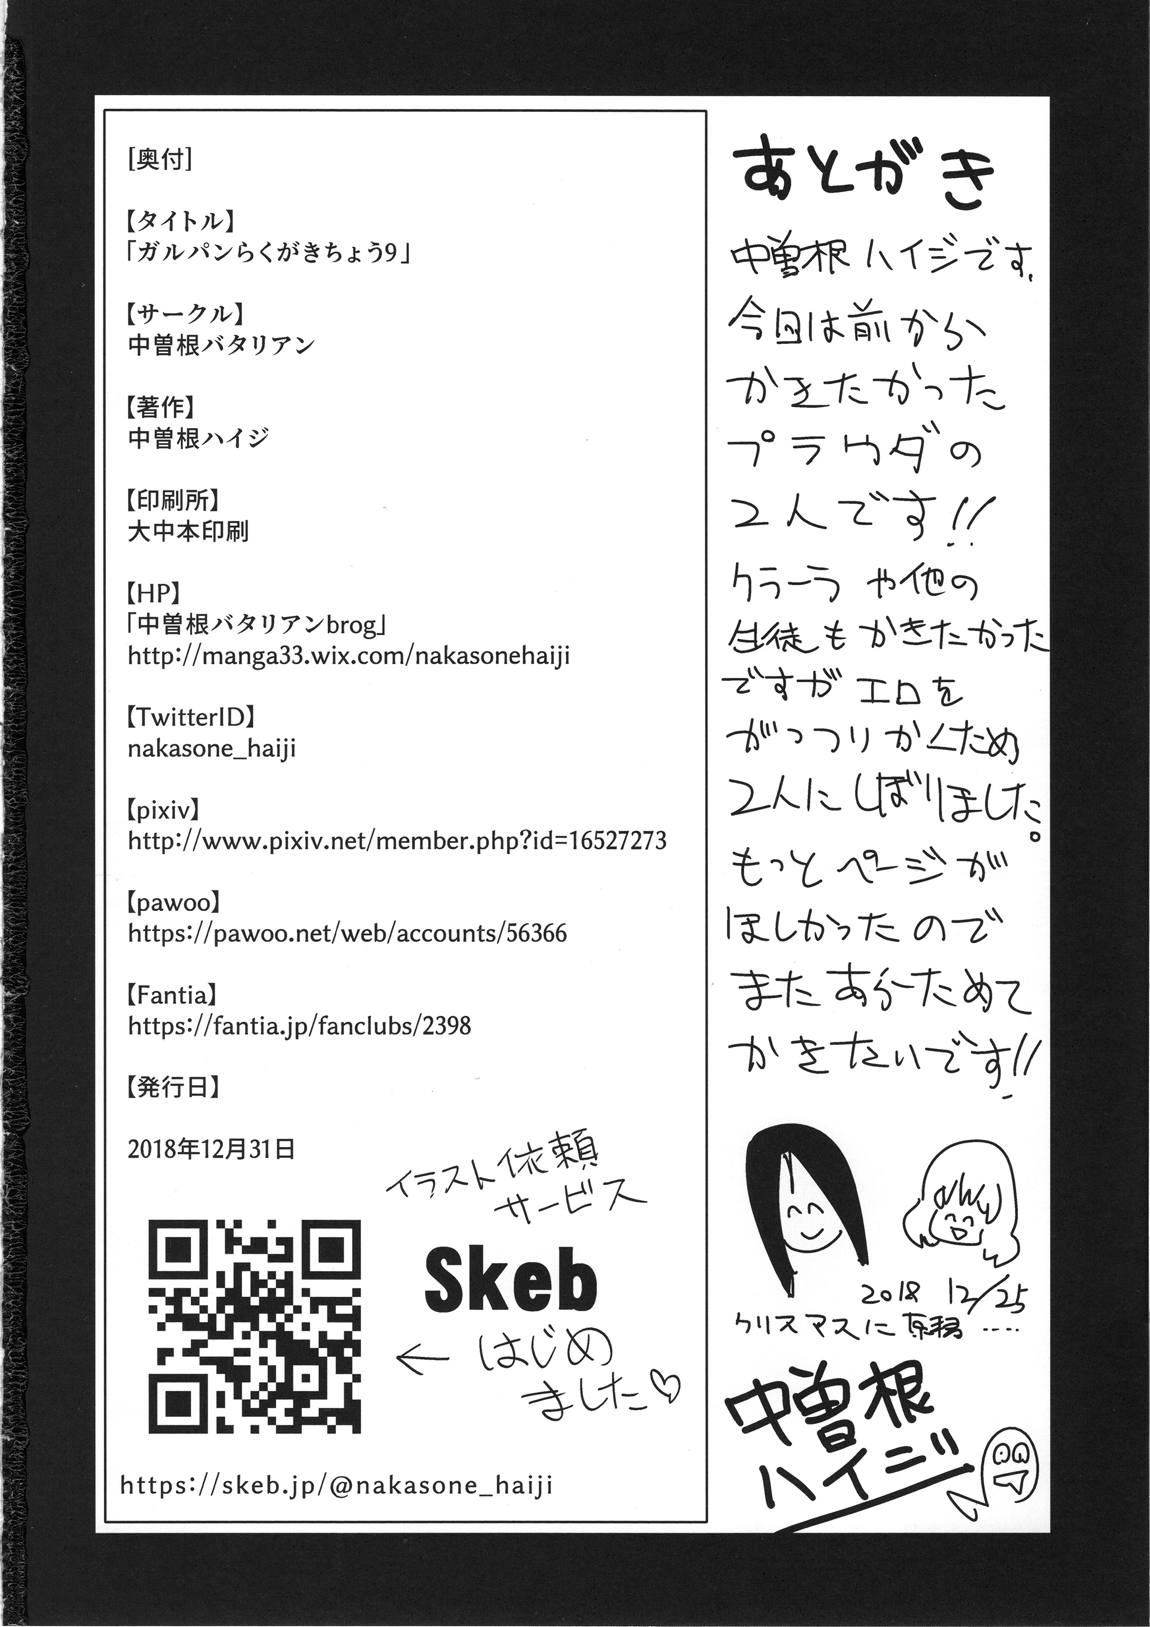 [奥付]
【タイトル】
「ガルパンらくがきちょう9」
【サークル】
中曽根バタリアン
【著作】
中曽根ハイジ
【印刷所】
大中本印刷
【HP】
「中曽根バタリアンbrog」
http://manga33.wix.com/nakasonehaiji
【TwitterID】
nakasone_haiji
【pixiv】
http://www.pixiv.net/member.php?id=16527273
【pawoo】
https://pawoo.net/web/accounts/56366
【Fantia】
https://fantia.jp/fanclubs/2398
【発行日】
2018年12月31日
イラスト依頼
サービス
Skeb
← はじめ
ました♡
https://skeb.jp/@nakasone_haiji
あとがき
中曽根ハイジです.
今回は前から
かきたかった
プラウダの
2人です!!
クラーラや他の
生徒もかきたかった
ですがエロを
がっつりかくため
2人にしぼりました。
もっとページが
ほしかったので
またあらためて
かきたいです!!
2018 12/25
クリスマスに原稿‥‥
中曽根
ハイジ